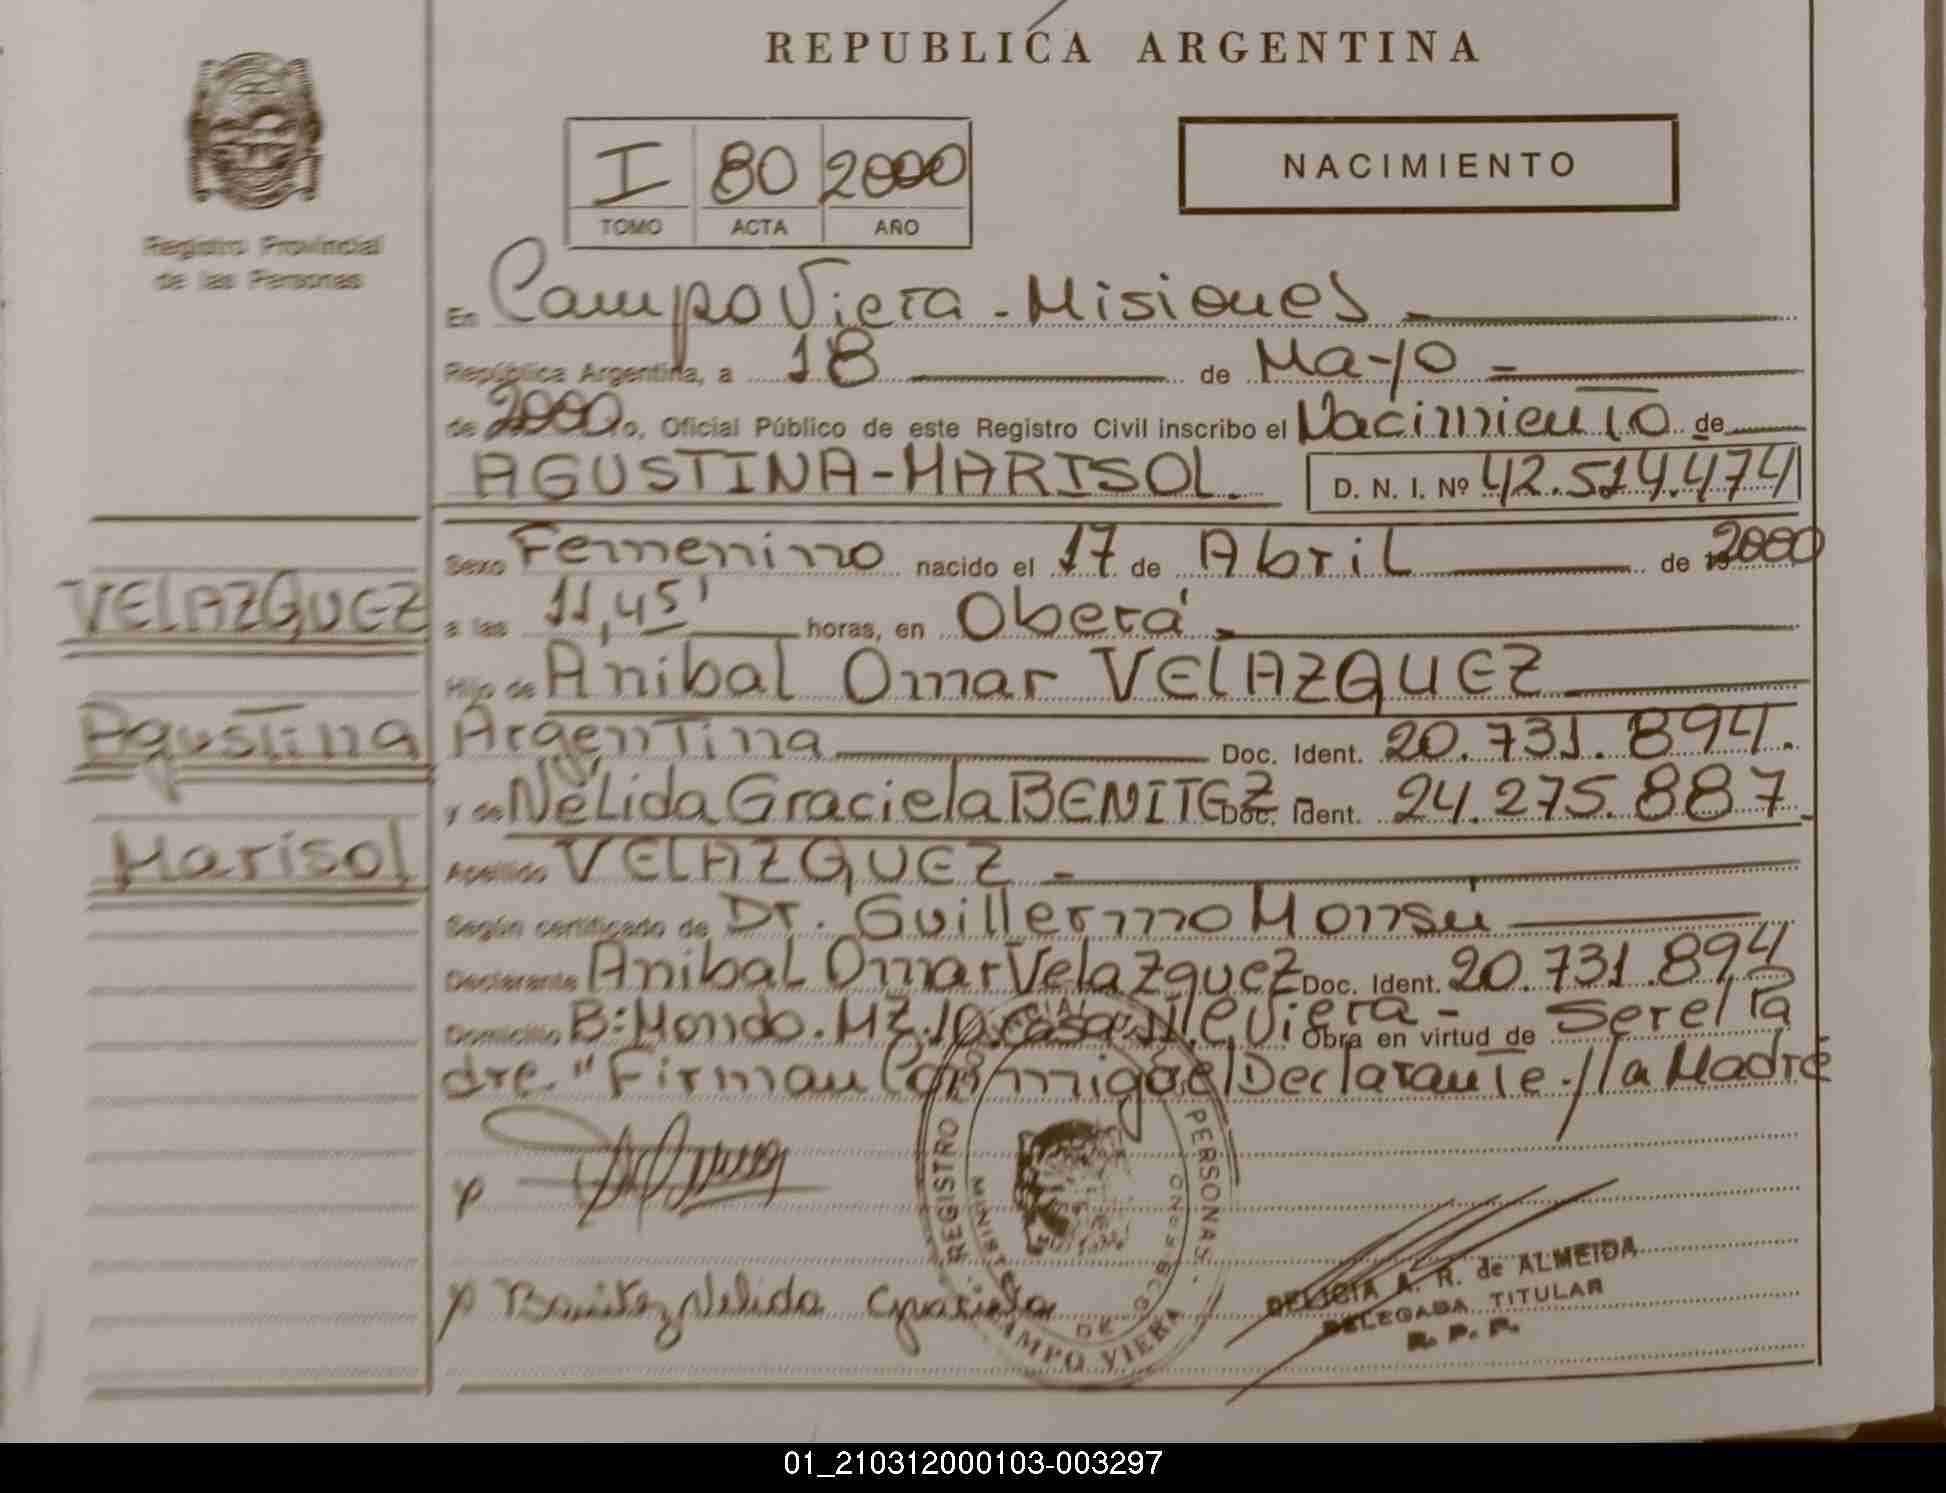 REPUBLICA ARGENTINA
Registro Provincial
de las Personas
I 80 2000
TOMO ACTA AÑO
NACIMIENTO
En Campo Viera - Misiones
República Argentina, a 18 de Mayo
de 2000 o, Oficial Público de este Registro Civil inscribo el Nacimiento de
AGUSTINA-MARISOL. D. N. I. Nº 42.514.474
Sexo Femenino nacido el 17 de Abril de 2000
VELAZQUEZ
a las 11,45' horas, en Oberá
Hijo de Anibal Omar VELAZQUEZ
Agustina
Argentina Doc. Ident. 20.731.894.
y de Nélida Graciela BENITEZ Doc. Ident. 24.275.887
Marisol
Apellido VELAZQUEZ
Según certificado de Dr. Guillermo Monsu
Declarante Anibal Omar Velazquez Doc. Ident. 20.731.894
Domicilio B: Mondo. MZ. 10 casa Viera - Obra en virtud de Ser el Pa
dre. "Firman Conmigo el Declarante / la Madre
Benitez Nelida Graciela
REGISTRO PERSONAS
CAMPO VIERA
DELICIA A. R. de ALMEIDA
DELEGADA TITULAR
R. P. P.
01_210312000103-003297